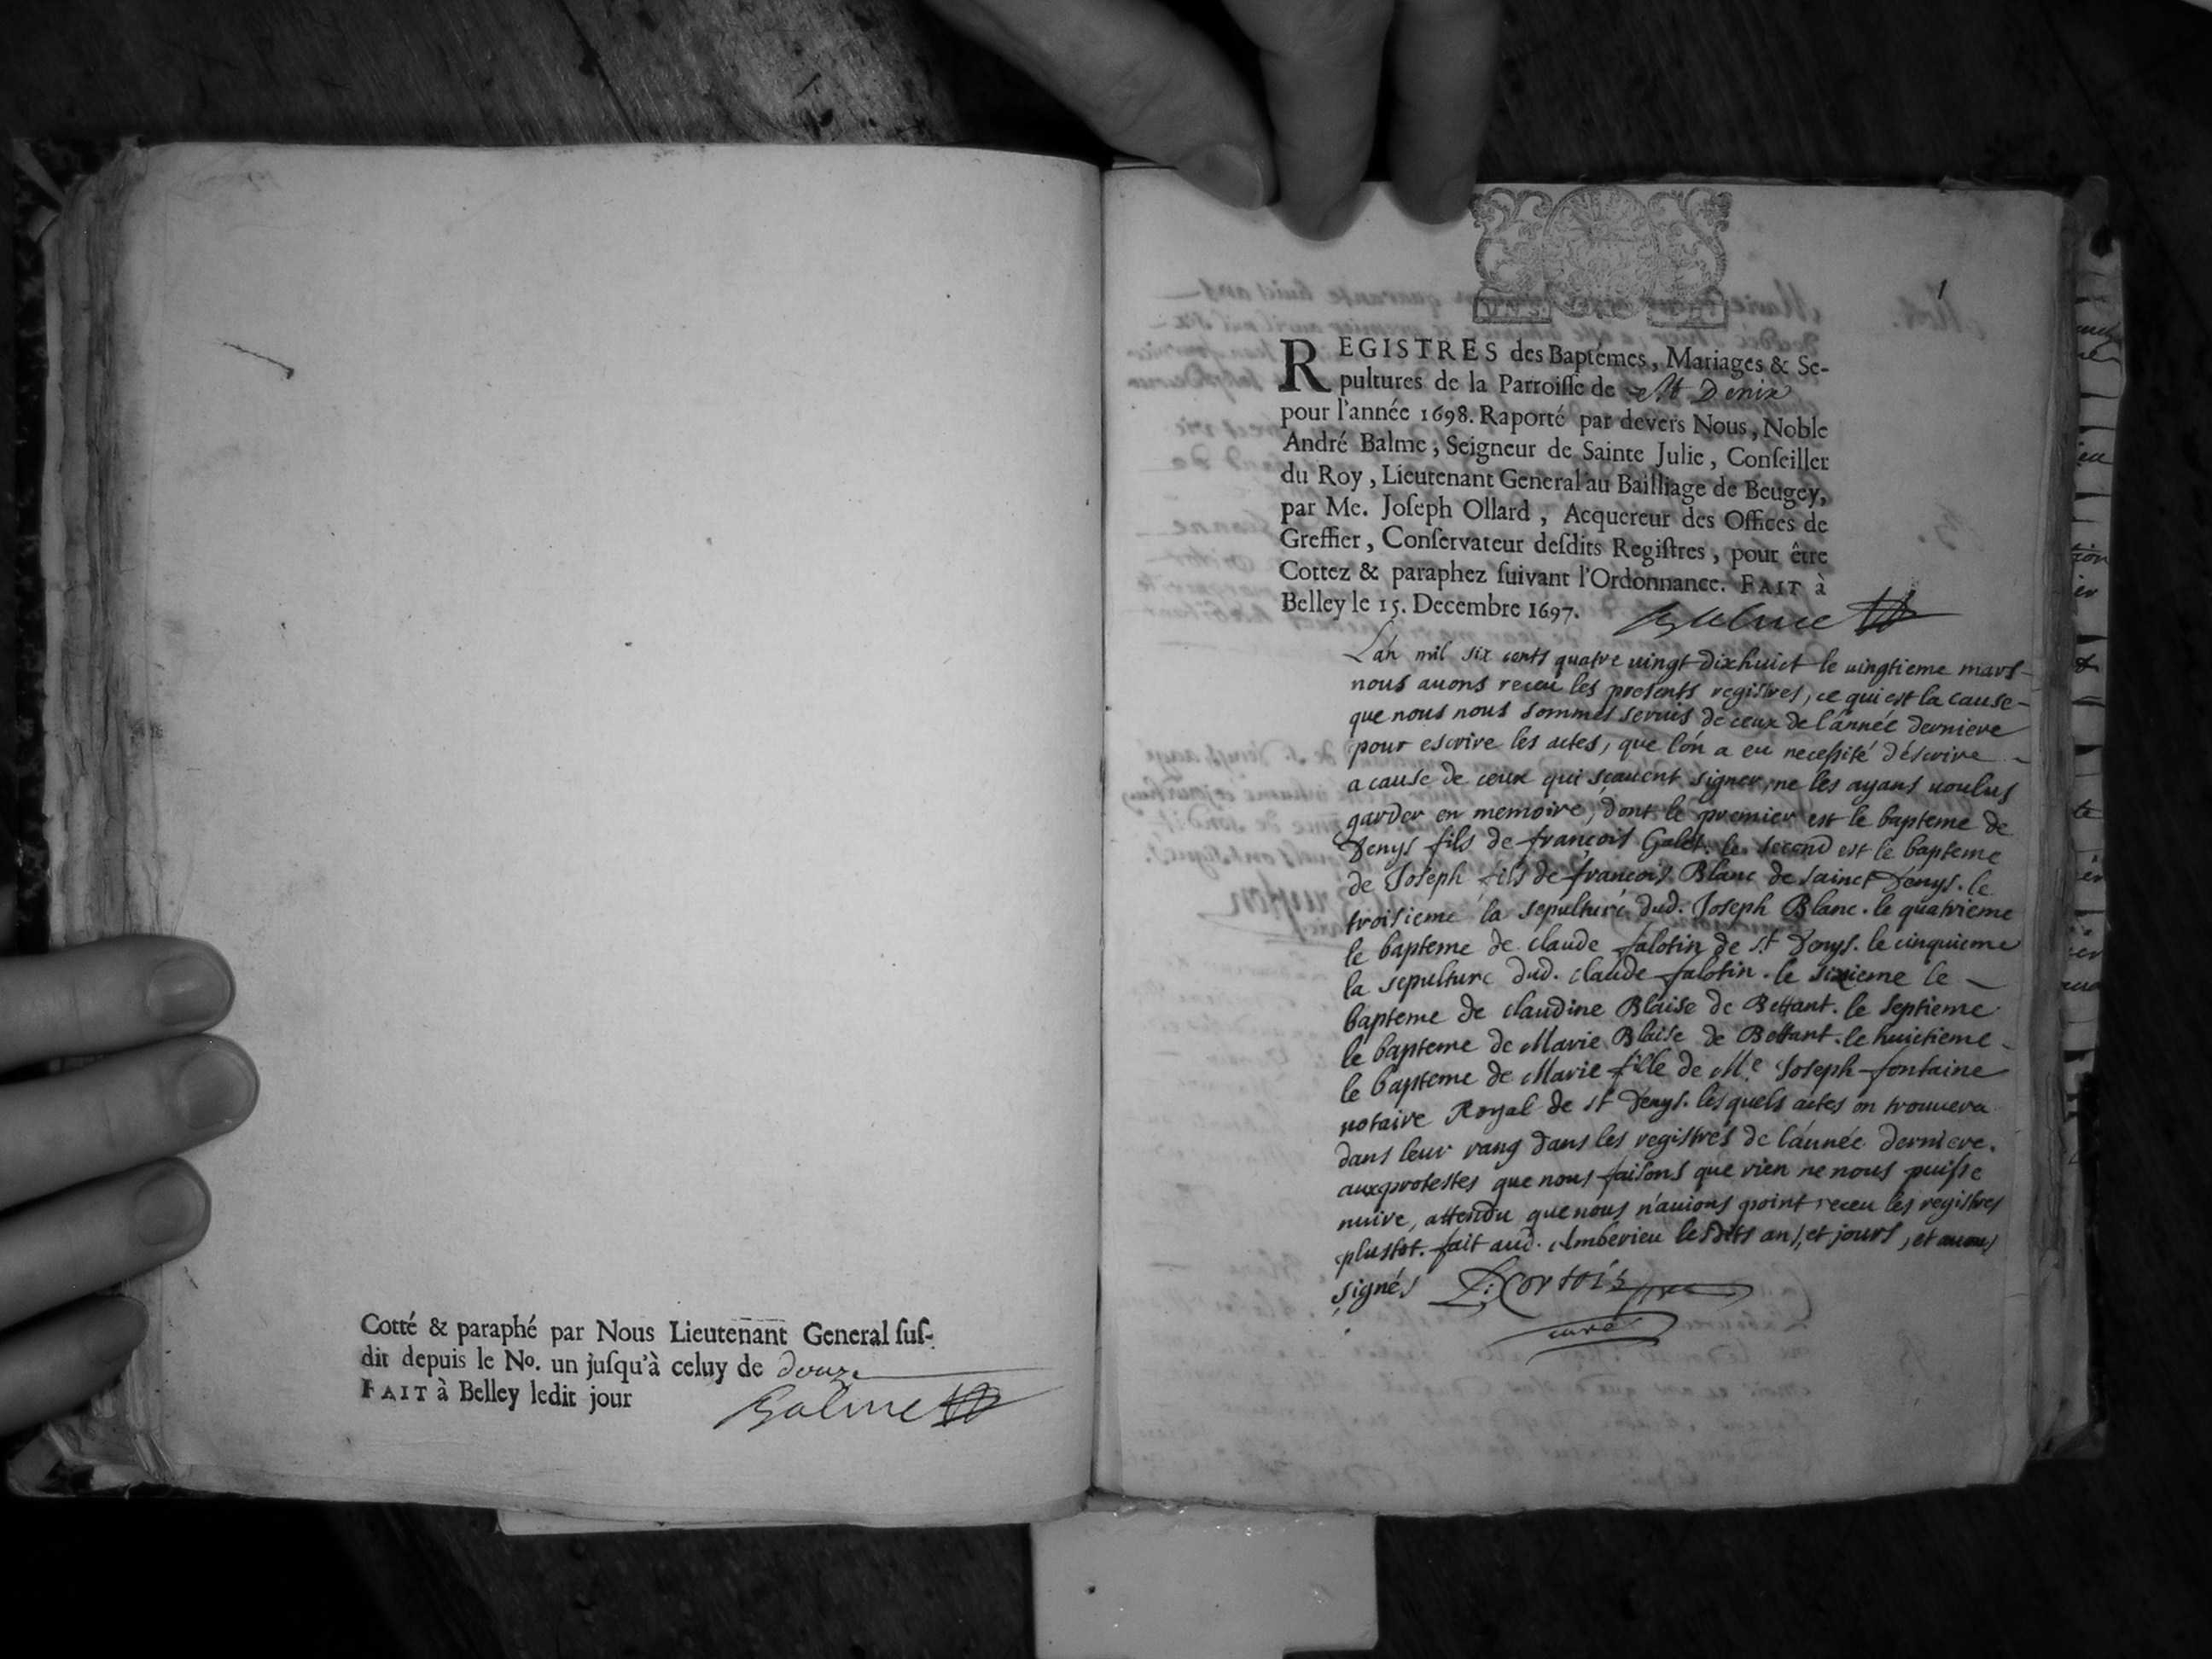 Cotté & paraphé par Nous Lieutenant General suſ-
dit depuis le No. un juſqu'à celuy de douze
FAIT à Belley ledit jour
Balme
1
REGISTRES des Baptêmes, Mariages & Se-
pultures de la Parroiſſe de St Denis
pour l'année 1698. Raporté par devers Nous, Noble
André Balme, Seigneur de Sainte Julie, Conſeiller
du Roy, Lieutenant General au Bailliage de Beugey,
par Me. Joſeph Ollard, Acquereur des Offices de
Greffier, Conſervateur deſdits Regiſtres, pour être
Cottez & paraphez ſuivant l'Ordonnance. FAIT à
Belley le 15. Decembre 1697.
Balme
L'an mil six cents quatre uingt dixhuict le uingtieme mars
nous auons receu les presents registres, ce qui est la cause
que nous nous sommes seruis de ceux de l'année derniere
pour escrire les actes, que l'on a eu necessité d'escrire
a cause de ceux qui sçauent signer, ne les ayans uoulus
garder en memoire, dont le premier est le bapteme de
Denys fils de françois Galet. le second est le bapteme
de Joseph fils de françois Blanc de sainct Denys. le
troisieme la sepulture dud. Joseph Blanc. le quatrieme
le bapteme de claude falotin de st Denys. le cinquieme
la sepulture dud. claude falotin. le sixieme le
bapteme de claudine Blaise de Bettant. le septieme
le bapteme de Marie Blaise de Bettant. le huictieme
le bapteme de Marie fille de Me Joseph fontaine
notaire Royal de st Denys. lesquels actes on trouuera
dans leur rang dans les registres de l'année derniere.
aux protestes que nous faisons que rien ne nous puisse
nuire, attendu que nous n'auions point receu les registres
plustot. fait aud. Amberieu lesdits an, et jours, et auons
signés
Cortois
curé